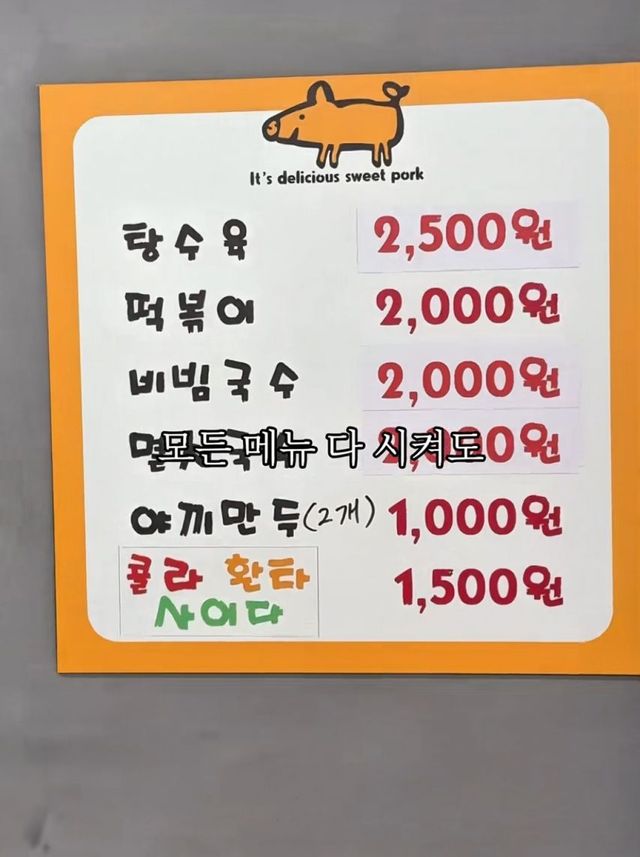 It's delicious sweet pork
탕수육 2,500원
떡볶이 2,000원
비빔국수 2,000원
모든 메뉴 다 시켜도
야끼만두(2개) 1,000원
콜라 환타 1,500원
사이다